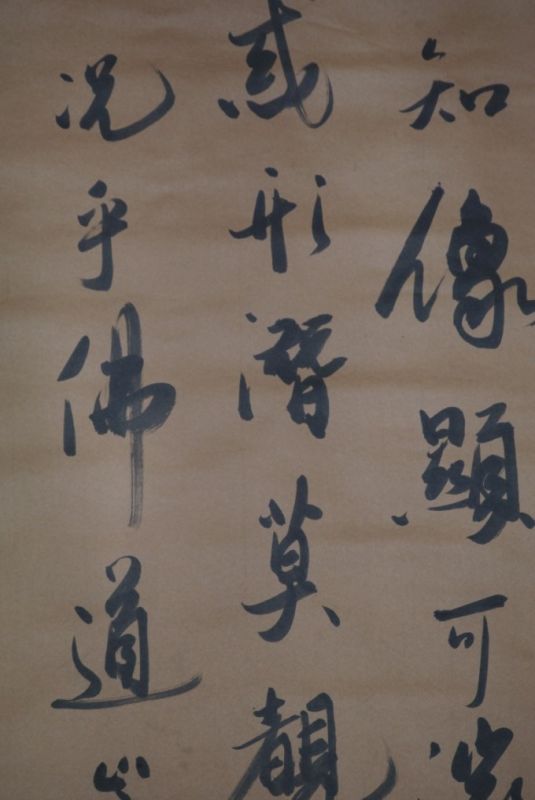 知像顯可
惑形潛莫覩
況乎佛道